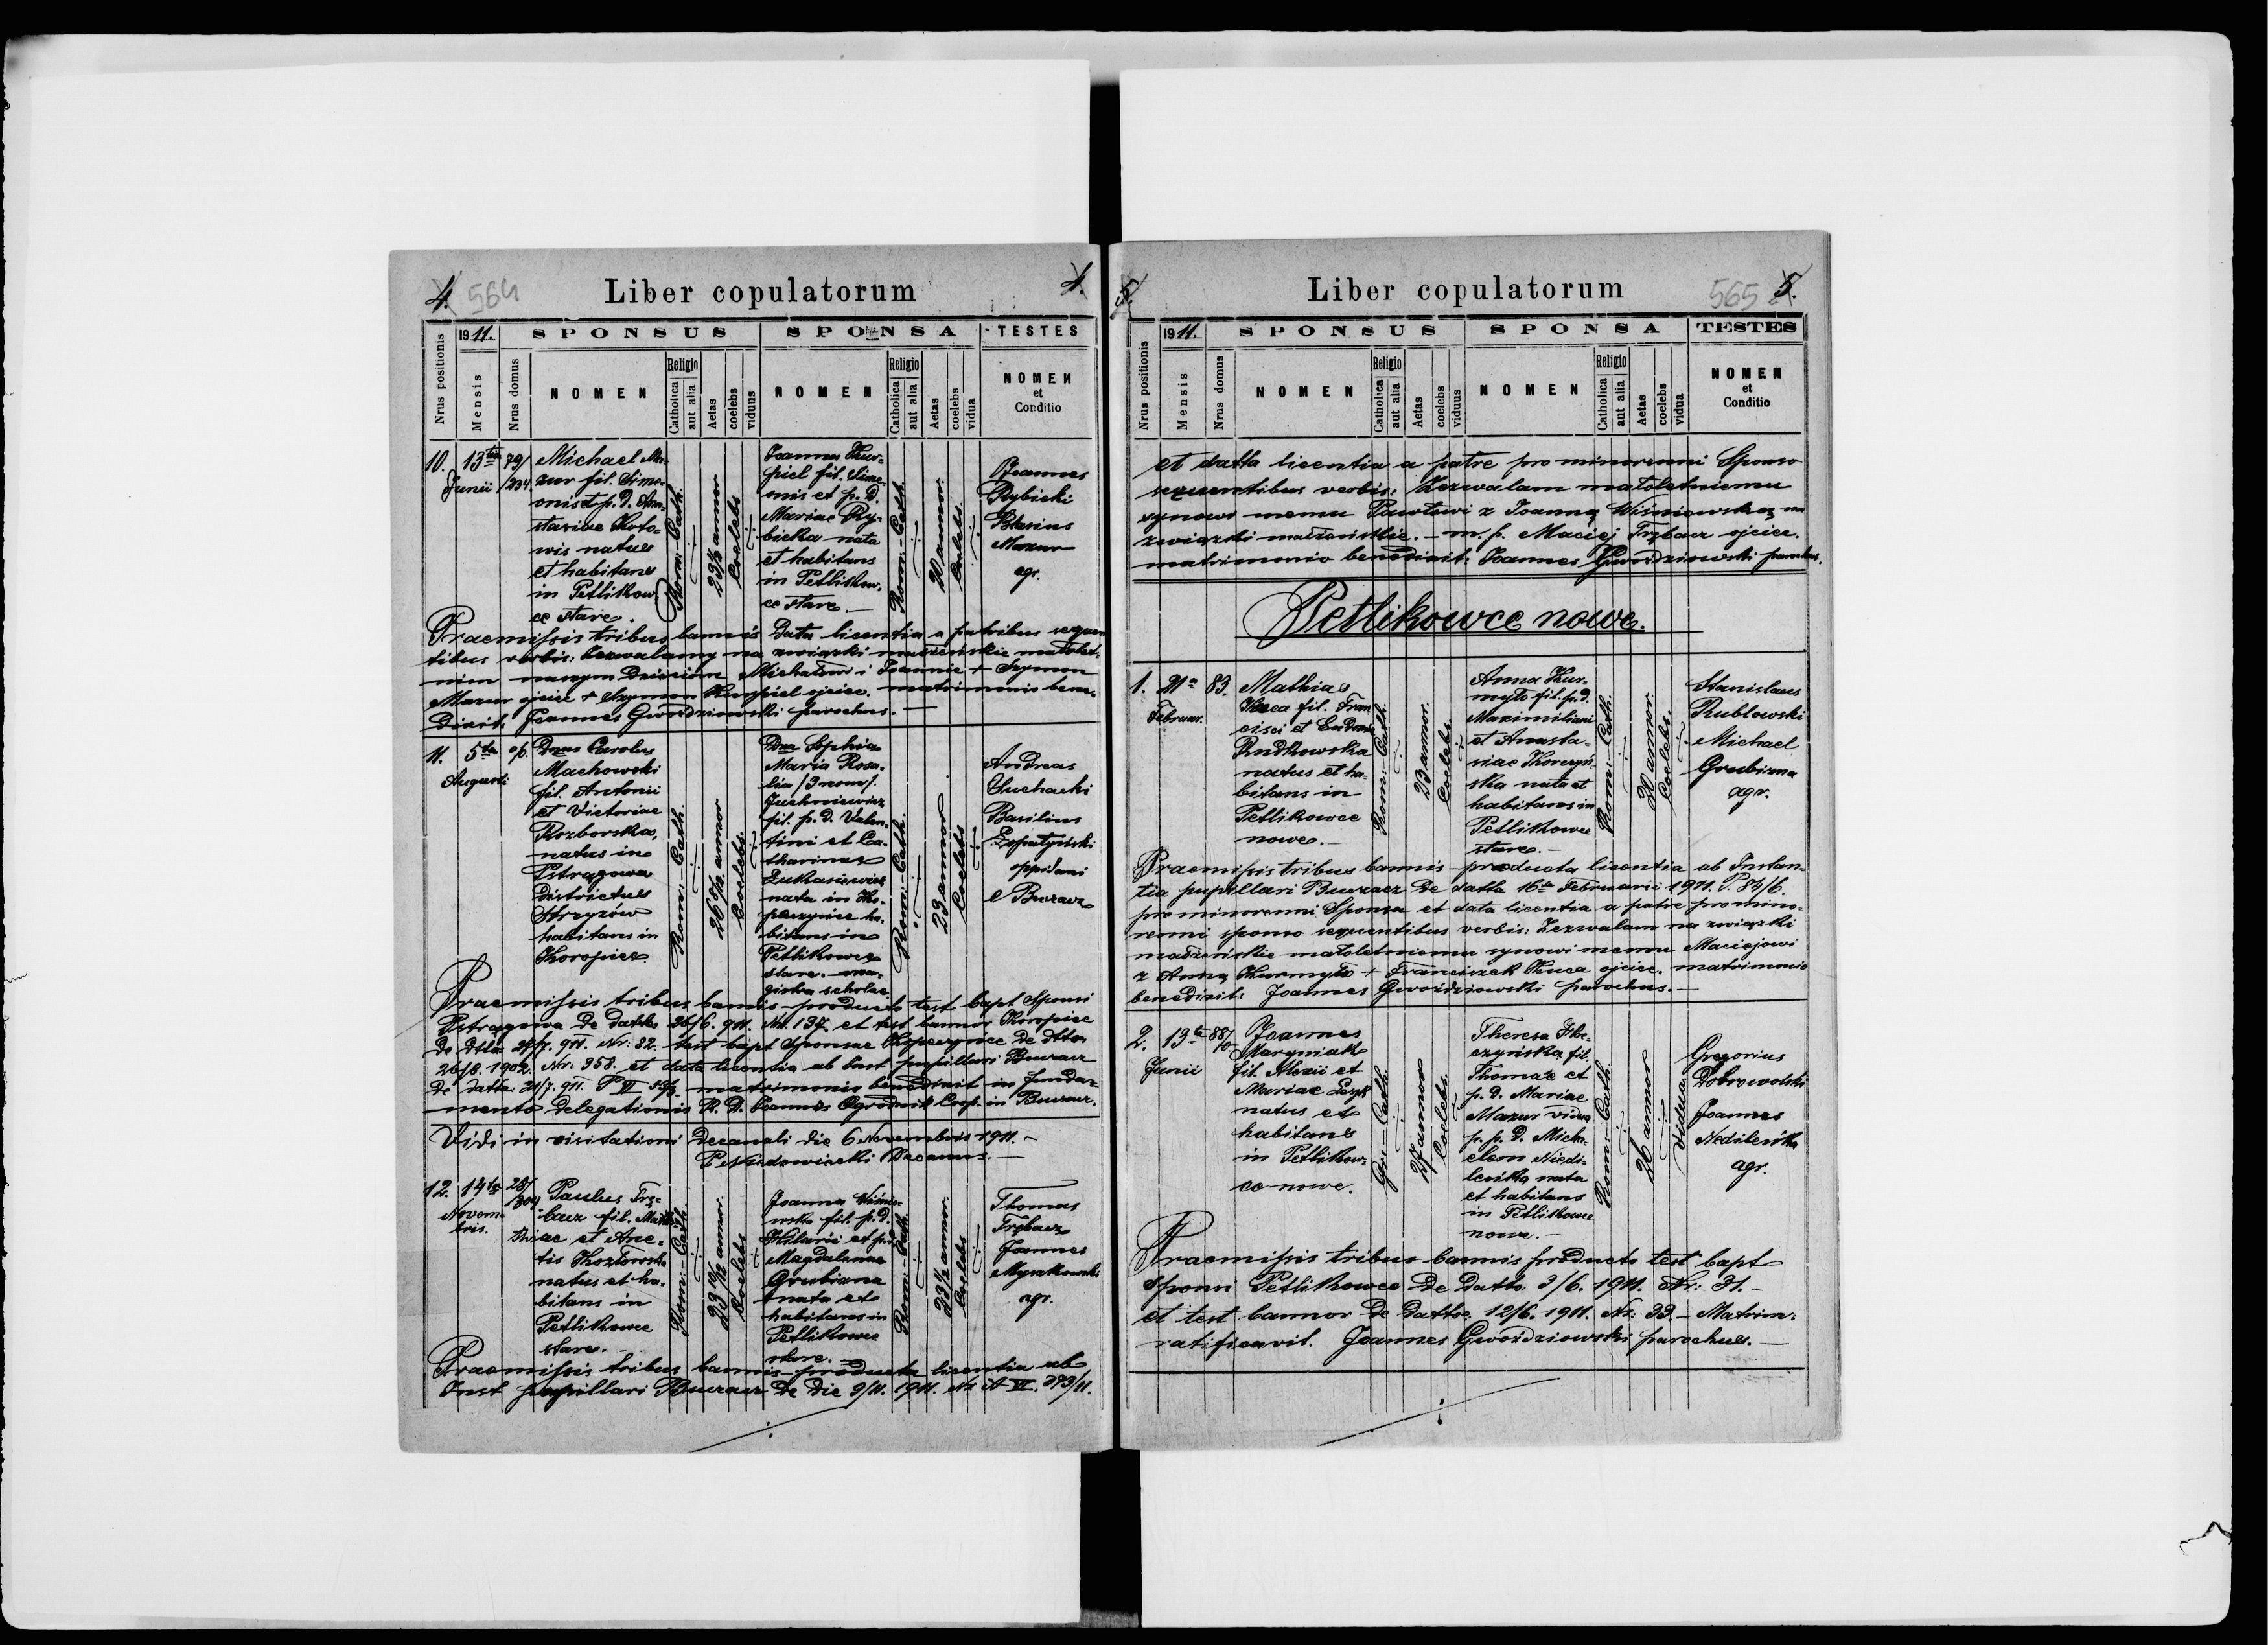 4. 564 Liber copulatorum 4.
Nrus positionis
1911.
Mensis
SPONSUS
Nrus domus
NOMEN
Religio
Catholica
aut alia
Aetas
coelebs
viduus
SPONSA
NOMEN
Religio
Catholica
aut alia
Aetas
coelebs
vidua
TESTES
NOMEN
et
Conditio
10.
13
Junii
79/
234
Michael Ma-
zur fil. Sime-
onis et p. d. Ana-
stasiae Koto-
wis natus
et habitans
in Petlikow-
ce stare.
Rom: Cath.
Coelebs
Joanna Kur-
piel fil. Sime-
onis et p. d.
Mariae Ry-
bicka nata
et habitans
in Petlikow-
ce stare.
Rom: Cath.
20 annor.
Coelebs.
Joannes
Rybicki
Blasius
Mazur
agr.
Praemissis tribus bannis Data licentia a patribus sequen
tibus verbis: Zezwalamy na związki małżeńskie małolet-
nim naszym Dzieciom Michałowi i Joannie + Szymon
Mazur ojciec + Szymon Kurpiel ojciec. matrimonio bene-
dixit: Joannes Gwoździowski parochus.
11.
5ta
Augusti
Dnus Carolus
Machowski
fil. Antonii
et Victoriae
Rozborska,
natus in
Pstrągowa
Districtus
Strzyżów
habitans in
Koropiec
Rom: Cath.
Coelebs.
Dna Sophia
Maria Rosa-
lia /3 nom/.
Juchniewicz
fil. p. d. Valen-
tini et Ca-
tharinae
Łukasiewicz
nata in Ko-
peczynce ha-
bitans in
Petlikowce
stare. ma-
gistra scholae.
Rom: Cath.
23 annor
Coelebs
Andreas
Suchacki
Basilius
oppidani
e Buczacz
Praemissis tribus bannis producto test bapt Sponsi
Pstrągowa De datto 26/6. 911. Nr. 137. et test bannor Koropiec
De dtto 27/7. 911. Nr: 82. test bapt Sponsae Kopeczynce De dtto
26/8. 1902. Nr: 358. et data licentia ab Inst pupillari Buczacz
De datto 21/7. 911. P VI matrimonio benedixit in funda-
mento Delegationis R. D. Joannes Ogrodnik Coop. in Buczacz.
Vidi in visitationi Decanali die 6 Novembris 1911.
Decanus.
12.
14ta
Novem-
bris.
Paulus Trę-
bacz fil. Mat-
thiae et Ane-
tis Kozłowska
natus et ha-
bitans in
Petlikowce
stare.
Rom: Cath.
23 10/12 annor.
Coelebs
Joanna Wiśnio-
wska fil. p. d.
Hilarii et p. d.
Magdalenae
Grubizna
nata et
habitans in
Petlikowce
stare.
Rom: Cath.
Coelebs
Thomas
Trębacz
Joannes
Myszkowski
agr.
Praemissis tribus bannis producta licentia ab
Inst pupillari Buczacz De Die 9/11. 1911. Nr A VI. 373/11.
5. Liber copulatorum 565 5.
Nrus positionis
1911.
Mensis
SPONSUS
Nrus domus
NOMEN
Religio
Catholica
aut alia
Aetas
coelebs
viduus
SPONSA
NOMEN
Religio
Catholica
aut alia
Aetas
coelebs
vidua
TESTES
NOMEN
et
Conditio
et datta licentia a patre pro minorenni Sponso
sequentibus verbis: Zezwalam małoletniemu
synowi memu Pawłowi z Joanną Wiśniowską na
związki małżeńskie. – m. p. Maciej Trębacz ojciec.
matrimonio benedixit: Joannes Gwoździowski parochus.
Petlikowce nowe.
1.
21a
Februar.
83.
Mathias
fil. Fran
cisci et Eudoxia
Rudkowska
natus et ha-
bitans in
Petlikowce
nowe.
Rom: Cath.
23 annor.
Coelebs.
Anna Kur-
myło fil. p. d.
Maximiliani
et Anasta-
siae
ska nata et
habitans in
Petlikowce
stare.
Rom: Cath.
20 annor.
Coelebs.
Stanislaus
Rublowski
Michael
Grubizna
agr.
Praemissis tribus bannis producta licentia ab Instan-
tia pupillari Buczacz De datta 16ta Februarii 1911. P. 84/6.
pro minorenni Sponsa et data licentia a patre pro mino-
renni sponso sequentibus verbis: Zezwalam na związki
małżeńskie małoletniemu synowi memu Maciejowi
z Anną Kurmyło + Franciszek ojciec. matrimonio
benedixit: Joannes Gwoździowski parochus.
2.
13ta
Junii
88/
10
Joannes
Maryniak
fil. Alexii et
Mariae
natus et
habitans
in Petlikow-
ce nowe.
Gr: Cath.
27 annor
Coelebs.
Theresa
fil.
Thomae et
p. d. Mariae
Mazur vidua
p. p. d. Micha-
elem Niedi-
leńko nata
et habitans
in Petlikowce
nowe.
Rom: Cath.
26 annor
Vidua
Gregorius
Dobrowolski
Joannes
Nedileńko
agr.
Praemissis tribus bannis producto test bapt
Sponsi Petlikowce De Datto 3/6. 1911. Nr: 31.
et test bannor De Datto 12/6. 1911. Nr: 33. – Matrim:
ratificavit. Joannes Gwoździowski parochus.